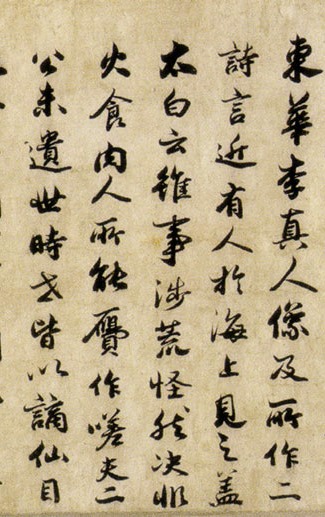 東華李真人像及所作二
詩言近有人於海上見之蓋
太白云雖事涉荒怪然決非
火食肉人所能贋作嗟夫二
公未遺世時世皆以謫仙目